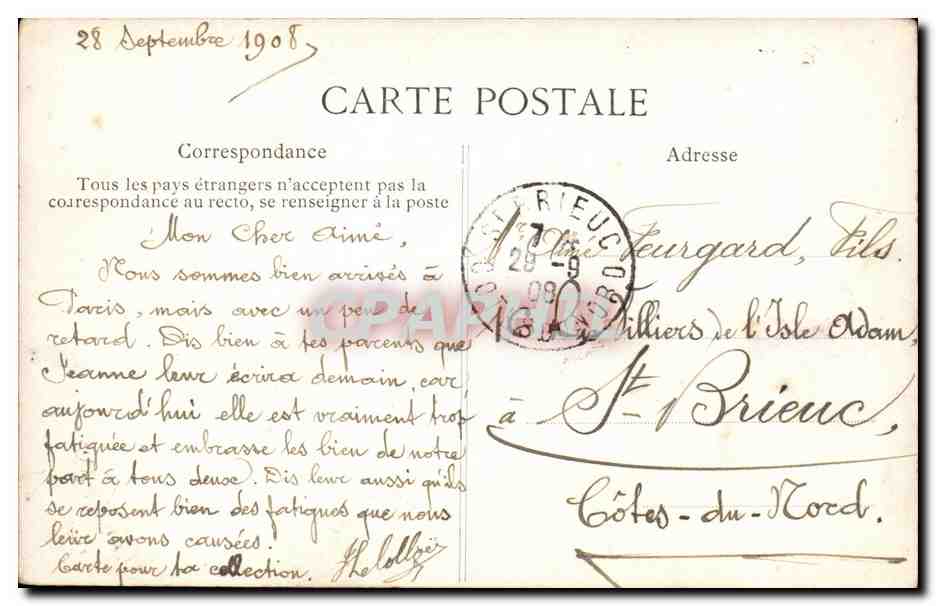 28 Septembre 1908
CARTE POSTALE
Correspondance
Tous les pays étrangers n'acceptent pas la
correspondance au recto, se renseigner à la poste
Mon Cher Aimé,
Nous sommes bien arrivés à
Paris, mais avec un peu de
retard. Dis bien à tes parents que
Jeanne leur écrira demain, car
aujourd'hui elle est vraiment trop
fatiguée et embrasse les bien de notre
part à tous deux. Dis leur aussi qu'ils
se reposent bien des fatigues que nous
leur avons causées.
Carte pour ta collection.
Adresse
ST BRIEUC
7
29 -9
08
CÔTES DU NORD
CPARAMA
Feurgard, Fils.
Villiers de l'Isle Adam,
à St-Brieuc,
Côtes-du-Nord.